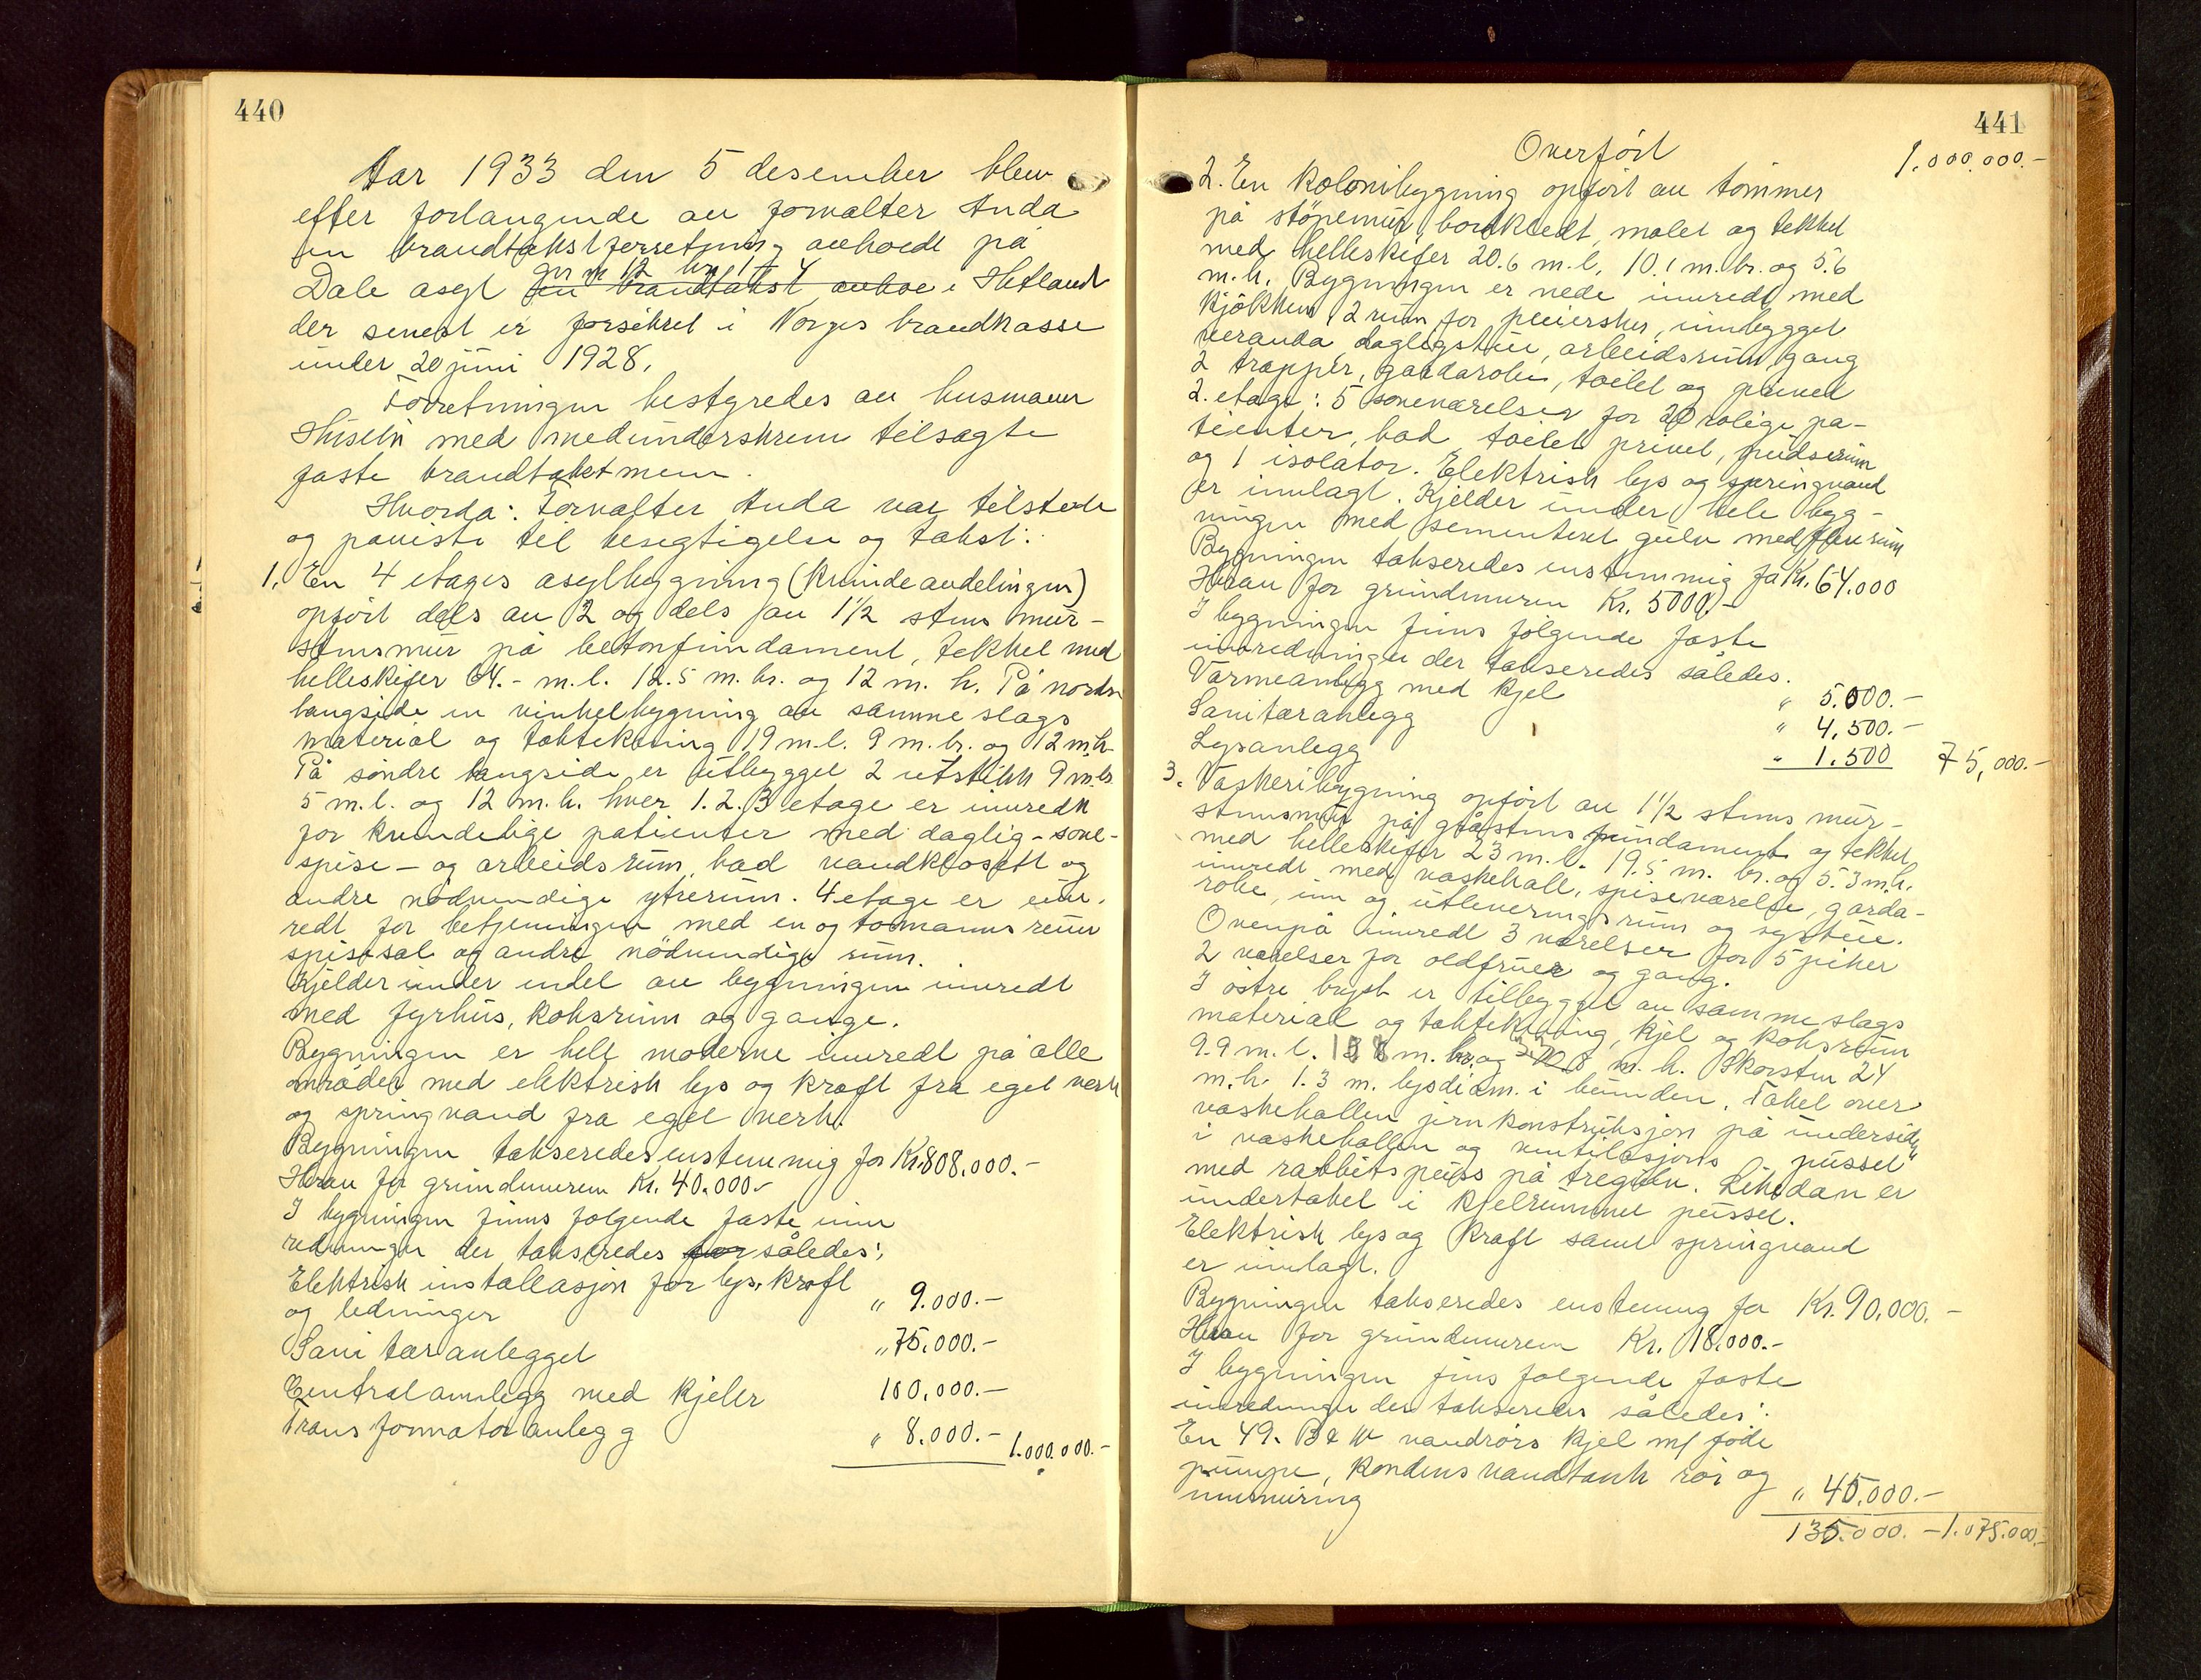 440
Aar 1933 den 5 desember blev
efter forlangende av forvalter Anda
en brandtakstforretning avhoedt på
gr nr 12 br 1 – 4
Dale asyl en brandtakst avhoe i Hetland
der senest er forsikret i Norges brandkasse
under 20 juni 1928.
Forretningen bestyredes av husmann
Husebø med medunderskrevne tilsagte
faste brandtakstmenn.
Hvorda: Forvalter Anda var tilstede
og paviste til besegtigelse og takst:
1. En 4 etages asylbygning (kvindeavdelingen)
opført dels av 2 og dels av 1½ stens mur-
stensmur på betonfundament, tekket med
helleskifer 64.- m.l. 12.5 m.br. og 12 m.h. På nordre
langside en vinkelbygning av samme slags
material og taktekning 19 m.l. 9 m.br. og 12 m.h.
På søndre langside er utbygget 2 utstikk 9 m.br.
5 m.l. og 12 m.h. hver 1.2.3 etage er innredt
for kvindelige patienter med daglig- sove-
spise- og arbeidsrum, bad vandklosett og
andre nødvendige ytrerum. 4 etage er inn-
redt for betjeningen med en og tomanns rum
spisesal og andre nödvendige rum.
Kjelder under endel av bygningen innredt
med fyrhus, koksrum og gange.
Bygningen er helt moderne innredt på alle
områder med elektrisk lys og kraft fra eget verk
og springvand fra eget verk.
Bygningen takseredes enstemmig for Kr. 808.000.-
Herav for grundmuren Kr. 40.000.-
I bygningen finns følgende faste inn
redninger der takseredes for således:
Elektrisk installasjon for lys, kraft
og ledninger " 9.000.-
Sanitæranlegget " 75.000.-
Centralannlegg med kjeler 100.000.-
Transformatoranlegg " 8.000.- 1.000.000.-
441
Overført 1.000.000.-
2. En kolonibygning opført av tømmer
på stöpemur, bordkledt, malet og tekket
med helleskifer 20.6 m.l. 10.1 m.br. og 5.6
m.h. Bygningen er nede innredt med
kjökken, 2 rum for pleiersker, innbygget
veranda dagligstue, arbeidsrum, gang
2 trapper, gardarobe, toilet og privet
2. etage: 5 soveværelser for 20 rolige pa-
tienter, bad toilet privet, pudserum
og 1 isolator. Elektrisk lys og springvand
er innlagt. Kjelder under hele byg-
ningen med sementeret gulv med flere rum
Bygningen takseredes enstemmig for Kr. 64.000
Herav for grundmuren Kr. 5000.-
I bygningen finns følgende faste
innredninger der takseredes således.
Varmeanlegg med kjel " 5.000.-
Sanitæranlegg " 4.500.-
Lysanlegg " 1.500 75,000.-
3. Vaskeribygning opført av 1½ stens mur-
stensmur på gråstens fundament og tekket
med helleskifer 23 m.l. 19.5 m. br. og 5.3 m.h.
innredt med vaskehall, spiseværelse, garda-
robe, inn og utleveringsrum og systue.
Ovenpå innredt 3 værelser for 5 piker
2 værelser for oldfruer og gang.
I østre bryst er tilbygget av samme slags
material og taktekning, kjel og koksrum
9.9 m.l. m. br. og m.h. Skorsten 24
m.h. 1.3 m. lysdiam. i bunden. Taket over
vaskehallen jernkonstruksjon på undersiden
i vaskehallen og ventilasjons pusset
med rabbitspuss på tregulv. Likedan er
undertaket i kjelrummet pusset.
Elektrisk lys og kraft samt springvand
er innlagt.
Bygningen takseredes enstemmig for Kr. 90.000.-
Herav for grundmuren Kr. 18.000.-
I bygningen fins følgende faste
innredninger der takseredes således:
En 49. B & W vandrørs kjel m/ føde
pumpe, kondensvandtank rør og
innmuring " 45.000.-
135.000.- 1.075.000.-